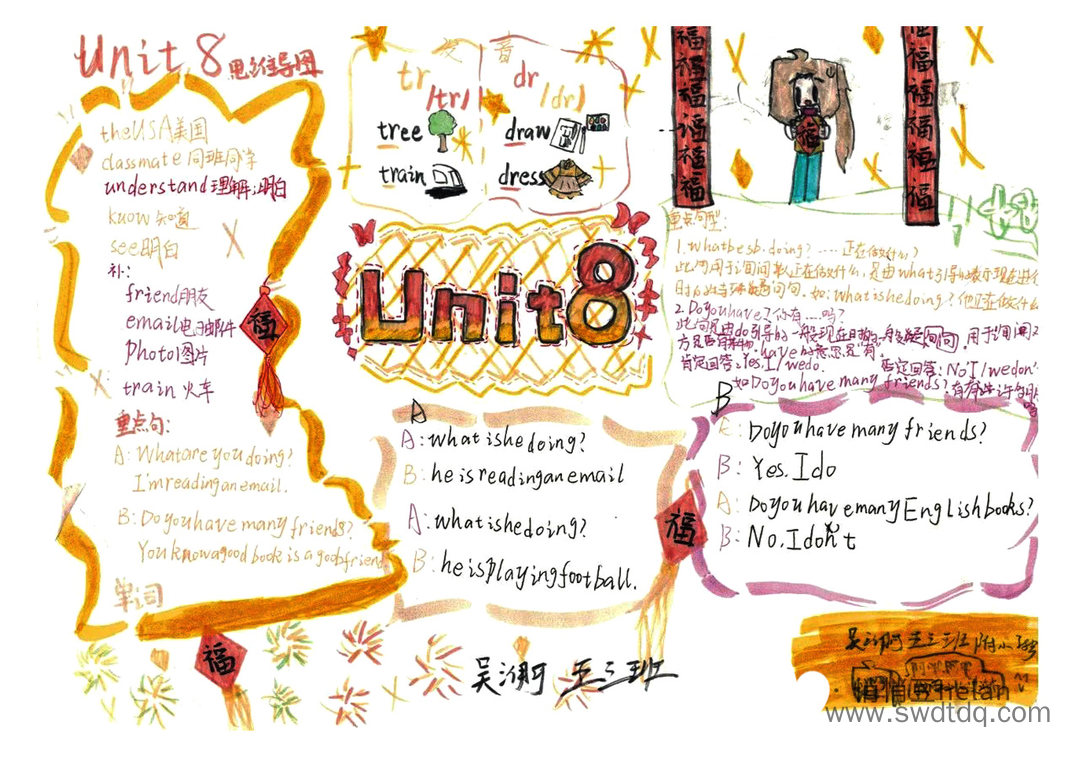 Unit 8 思维导图
the USA 美国
classmate 同班同学
understand 理解;明白
kuow 知道
see 明白
补:
friend 朋友
email 电子邮件
photo 图片
train 火车
重点句:
A: What are you doing?
I'm reading an email.
B: Do you have many friends?
You know a good book is a good friend
单词
发音
tr
/tr/
tree
train
dr
/dr/
draw
dress
Unit8
福福福福福
福福福福
福
福
福
福
重点句型:
1. what be sb. doing? ....正在做什么?
此句用于询问某人正在做什么,是由what引导的表示现在进行
时的特殊疑问句.如:what is he doing? 他正在做什么
2. Do you have? 你有....吗?
此句是由do引导的一般现在时的一般疑问句,用于询问
肯定回答:Yes. I/we do. 否定回答:No I/we don't
如 Do you have many friends?
A
A: what is he doing?
B: he is reading an email
A: what is he doing?
B: he is playing football.
B
Do you have many friends?
B: Yes. I do
A: Do you have many English books?
B: No. I don't
吴 五三班
吴 五三班 附小
www.swdtdq.com